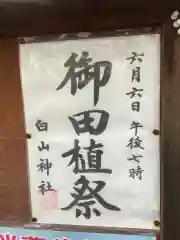 六月六日 午後七時
御田植祭
白山神社